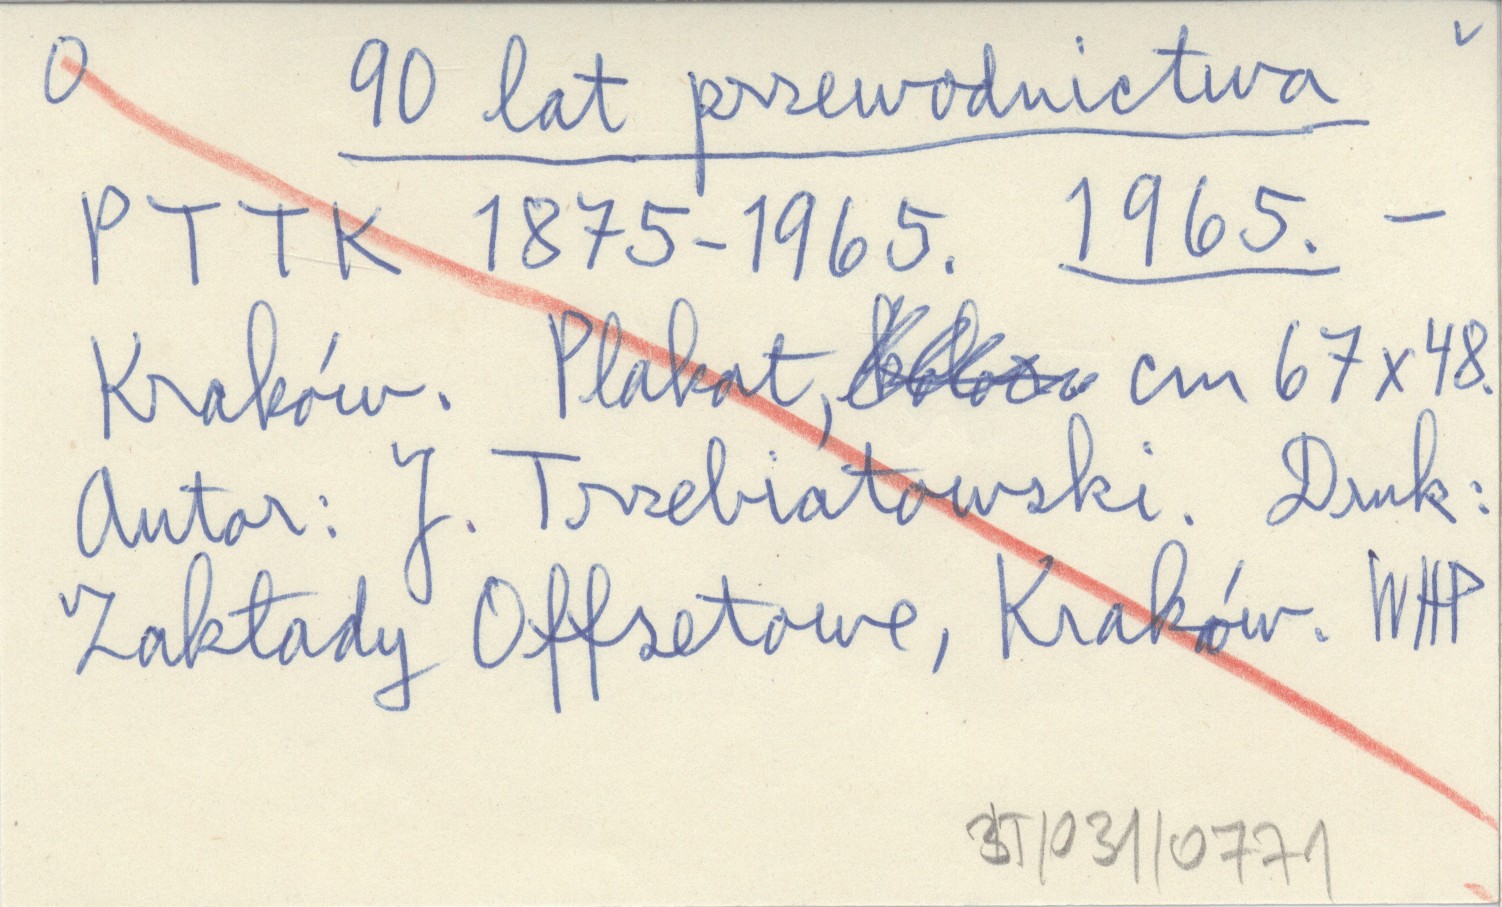 O 90 lat przewodnictwa
PTTK 1875-1965. 1965. –
Kraków. Plakat, cm 67x48.
Autor: J. Trzebiatowski. Druk:
Zakłady Offsetowe, Kraków. WHP
/031/0771